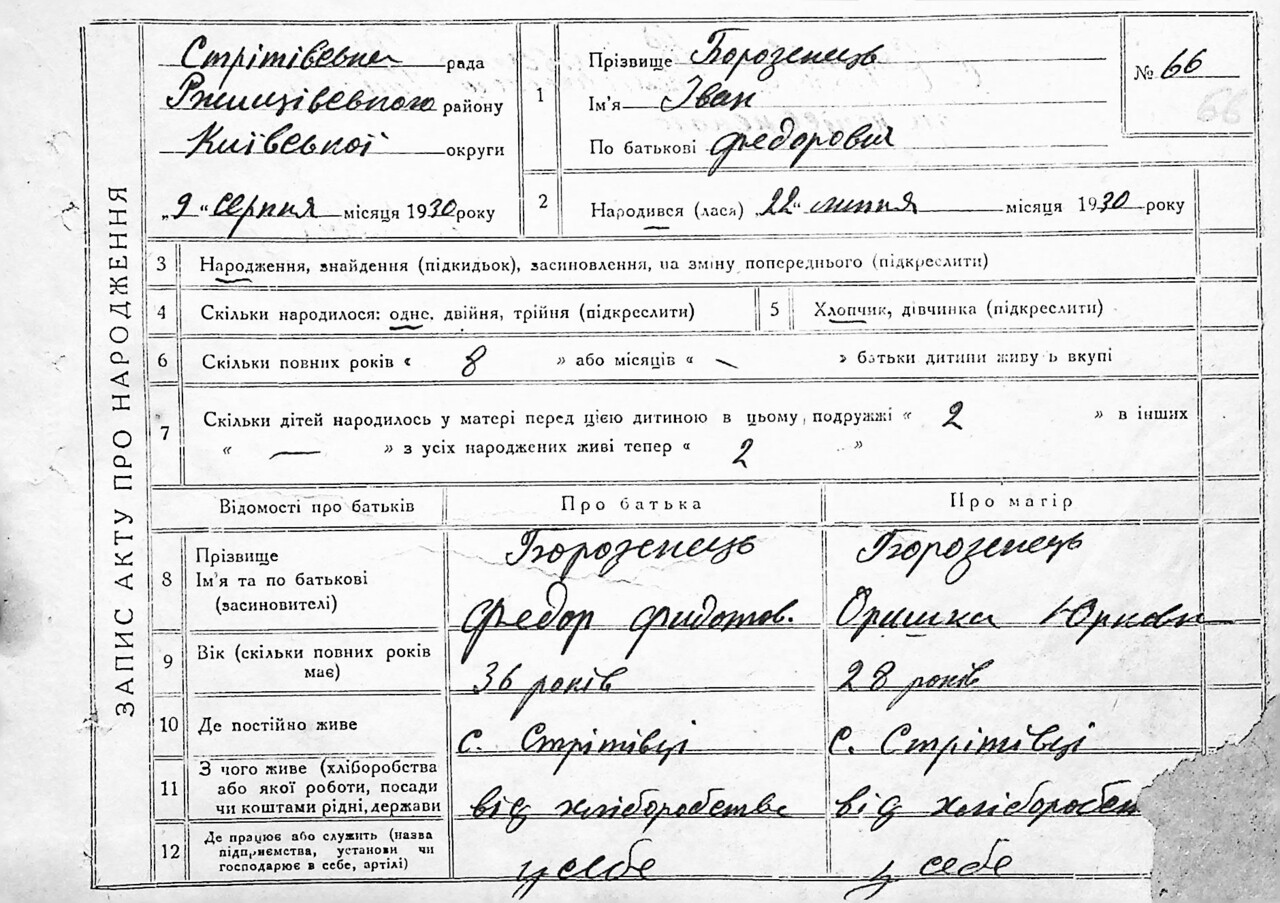 ЗАПИС АКТУ ПРО НАРОДЖЕННЯ
Стрітівська рада
Ржищівського району
Київської округи
„9“ серпня місяця 1930 року
1 Прізвище Борозенець
Ім'я Іван
По батькові Федорович
№ 66
2 Народився (лася) „22“ липня місяця 1930 року
3 Народження, знайдення (підкидьок), засиновлення, на зміну попереднього (підкреслити)
4 Скільки народилося: одне, двійня, трійня (підкреслити)
5 Хлопчик, дівчинка (підкреслити)
6 Скільки повних років « 8 » або місяців « — » батьки дитини живуть вкупі
7 Скільки дітей народилось у матері перед цією дитиною в цьому, подружжі « 2 » в інших
« — » з усіх народжених живі тепер « 2 »
Відомості про батьків Про батька Про матір
8 Прізвище Борозенець Борозенець
Ім'я та по батькові
(засиновителі) Федор Фидотов. Оришка Юрковн
9 Вік (скільки повних років
має) 36 років 28 років
10 Де постійно живе с. Стрітівці с. Стрітівці
11 З чого живе (хліборобства
або якої роботи, посади
чи коштами рідні, держави від хліборобства від хліборобст
12 Де працює або служить (назва
підприємства, установи чи
господарює в себе, артілі) у себе у себе